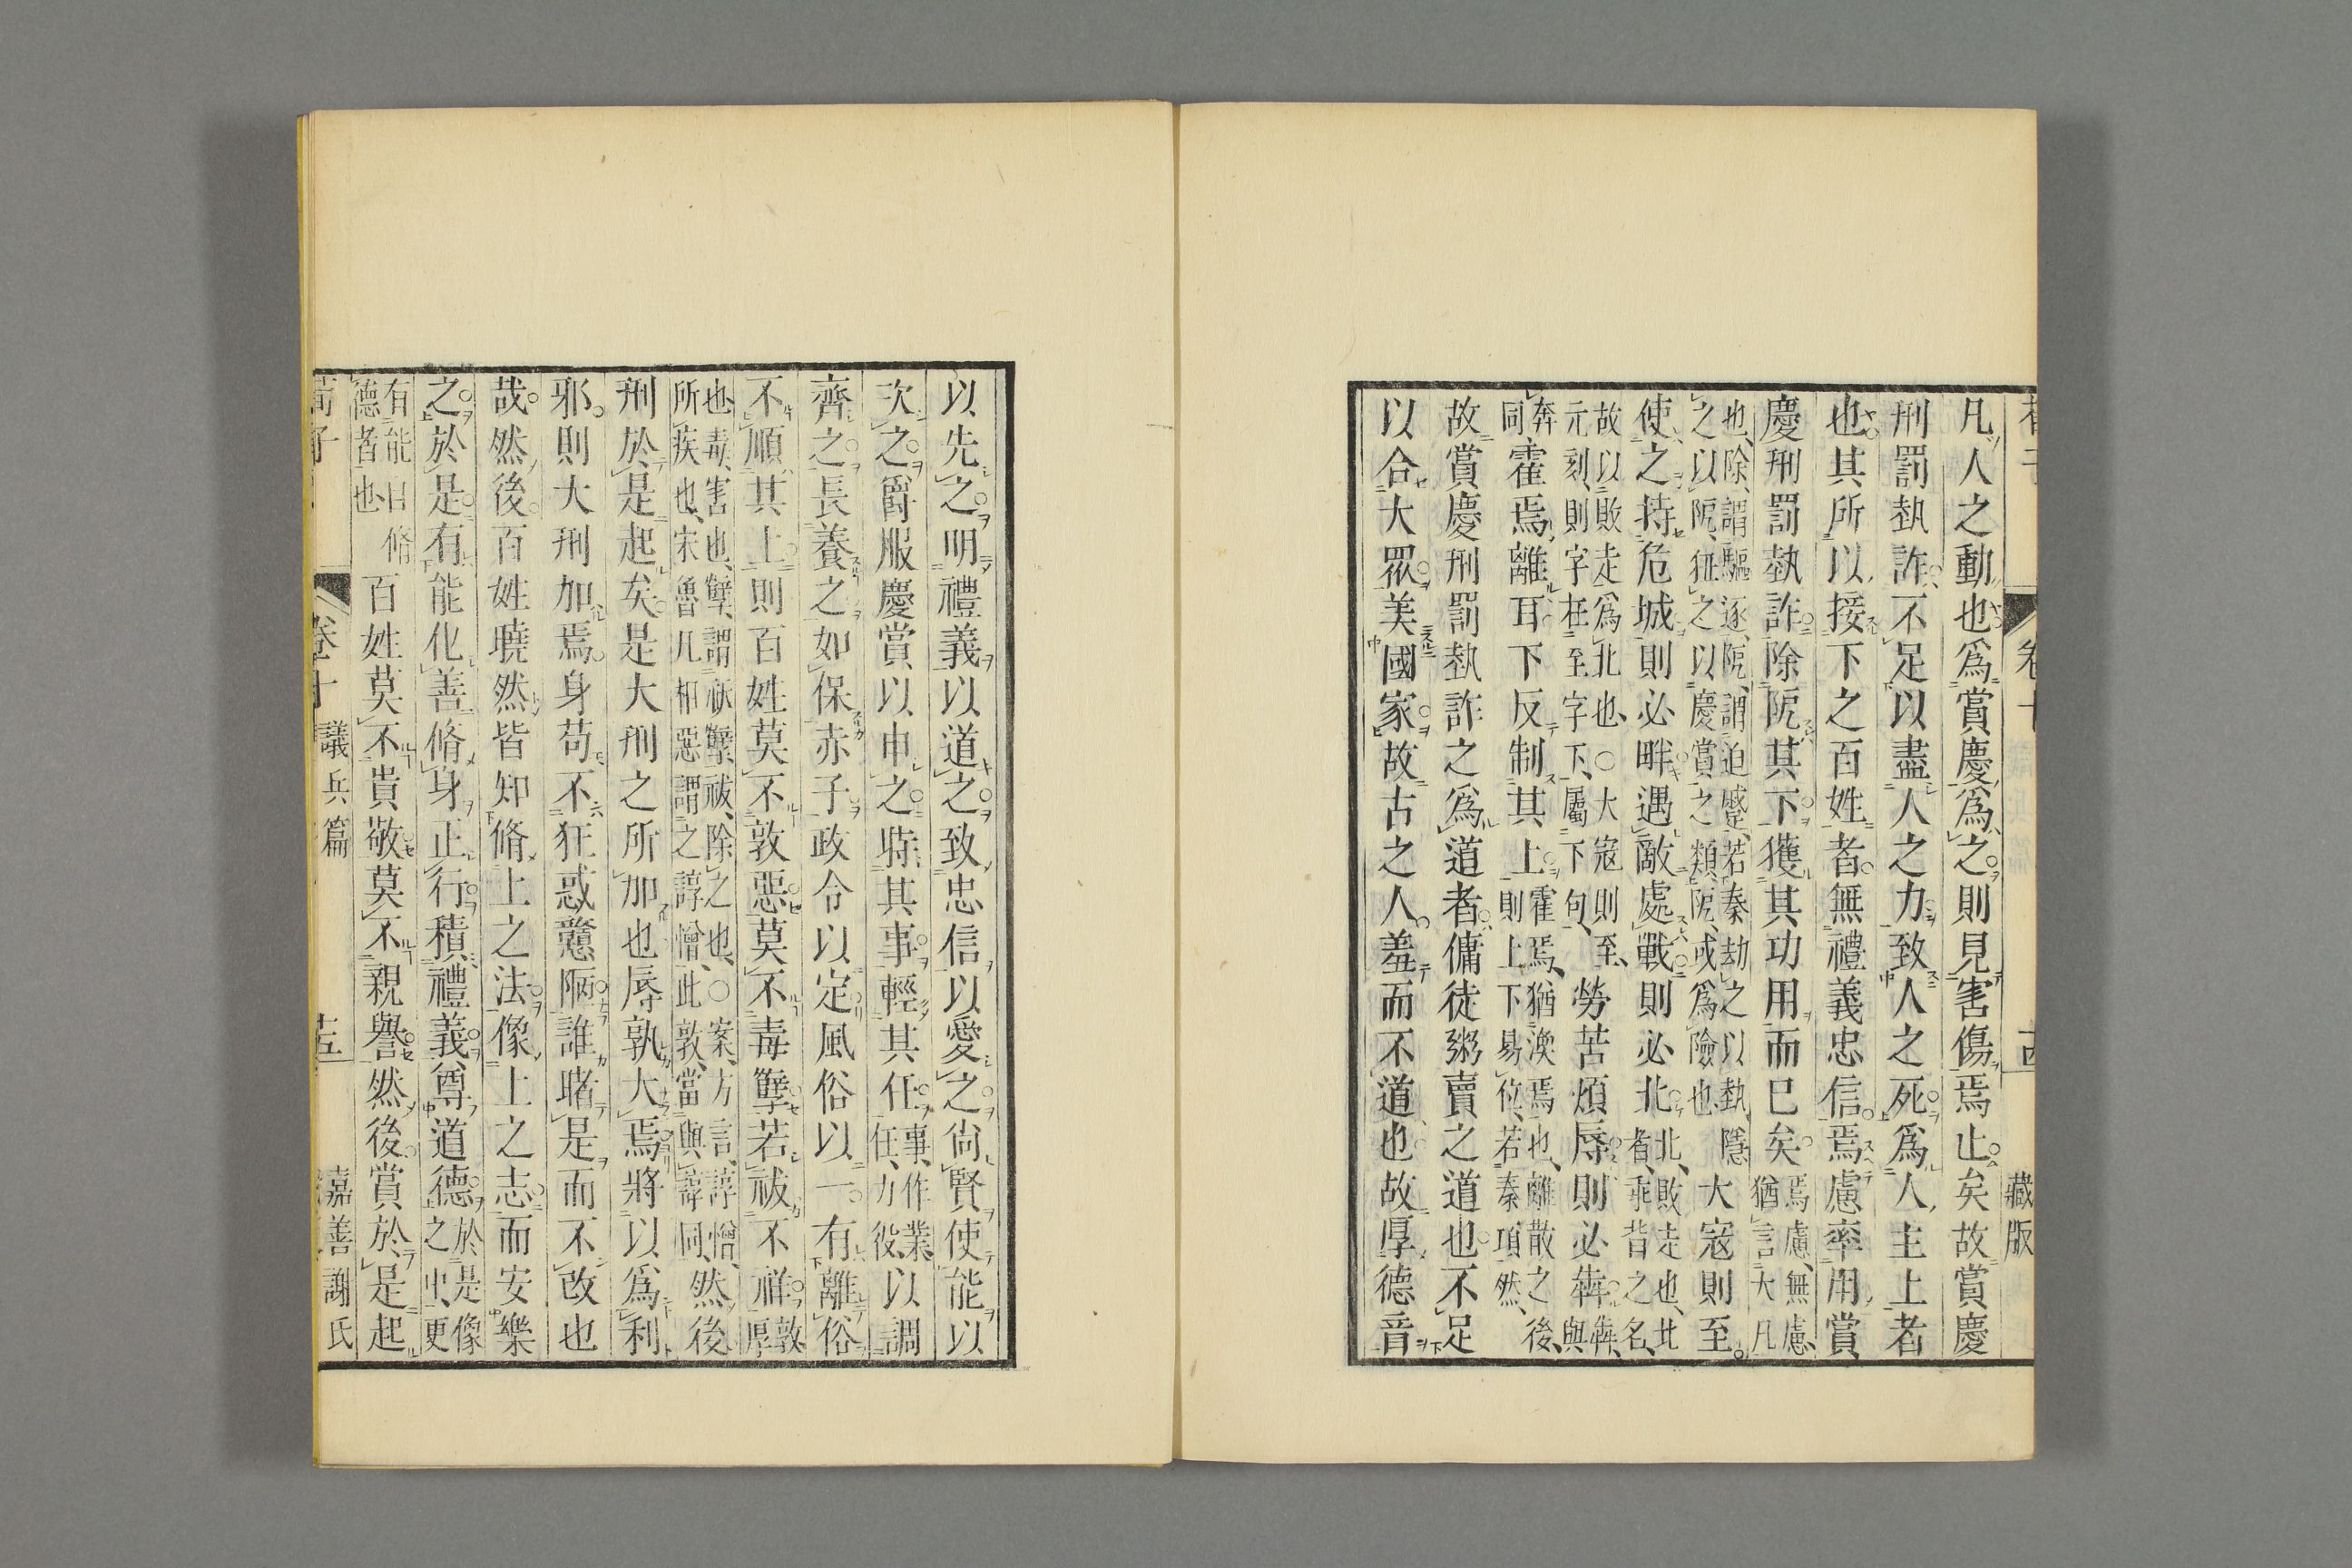 卷十 藏版
凡人之動也爲賞慶爲之則見害傷焉止矣故賞慶
刑罰埶詐不足以盡人之力致人之死爲人主上者
也其所以接下之百姓者無禮義忠信焉慮率用賞
慶刑罰埶詐除阸其下獲其功用而已矣焉慮無慮猶言大凡
也除謂驅逐阸謂迫蹙若秦劫之以埶隱之以阸狃之以慶賞之類阸或爲險也大寇則至
使之持危城則必畔遇敵處戰則必北北敗走也北者乖背之名
故以敗走爲北也○大寇則至元刻則字在至字下屬下句勞苦煩辱則必犇犇與
奔同霍焉離耳下反制其上霍焉猶渙焉也離散之後則上下易位若秦項然
故賞慶刑罰埶詐之爲道者傭徒粥賣之道也不足
以合大眾美國家故古之人羞而不道也故厚德音
以先之明禮義以道之致忠信以愛之尙賢使能以
次之爵服慶賞以申之時其事輕其任事作業任力役以調
齊之長養之如保赤子政令以定風俗以一有離俗
不順其上則百姓莫不敦惡莫不毒孽若祓不祥敦厚
也毒害也孽謂祅孽祓除之也○案方言諄憎所疾也宋魯凡相惡謂之諄憎此敦當與諄同然後
刑於是起矣是大刑之所加也辱孰大焉將以爲利
邪則大刑加焉身苟不狂惑戇陋誰睹是而不改也
哉然後百姓曉然皆知脩上之法像上之志而安樂
之於是有能化善脩身正行積禮義尊道德於是像之中更
有能自脩德者也百姓莫不貴敬莫不親譽然後賞於是起
荀子 卷十 議兵篇 十五 嘉善謝氏